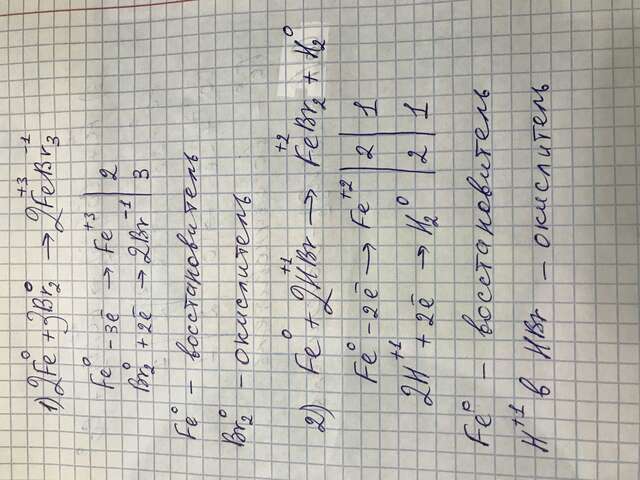 1) 2Fe⁰ + 3Br₂⁰ → 2Fe⁺³Br₃⁻¹
Fe⁰ - 3ē → Fe⁺³ | 2
Br₂⁰ + 2ē → 2Br⁻¹ | 3
Fe⁰ – восстановитель
Br₂⁰ – окислитель
2) Fe⁰ + 2H⁺¹Br → Fe⁺²Br₂ + H₂⁰
Fe⁰ - 2ē → Fe⁺² | 2 | 1
2H⁺¹ + 2ē → H₂⁰ | 2 | 1
Fe⁰ – восстановитель
H⁺¹ в HBr – окислитель